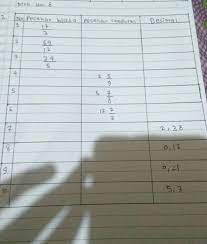 No Pecahan biasa Pecahan campuran Desimal
1 17
7
2 59
12
3 24
5
4 2 5
9
5 5 2
8
6 12 2
3
7 2,38
8 0,12
9 0,21
5,7